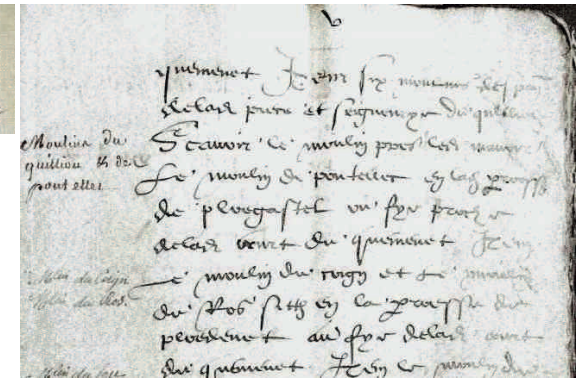 v
quemenet Item six moulins
delad piece et seigneurye du quilliou
Scavoir le moulin pres led manoir
Le moulin de pontellec en lad paroesse
de ploegastel ou fye proche
delad court du quemenet Item
Le moulin du coign et Le moulin
du Ros sith en la paroesse de
ploedenet au fye delad court
du quemenet Item le moulin du
Moulins du
quilliou & de
pont ellec
Mlin du Coign
Mlin du Ros
Mlin du